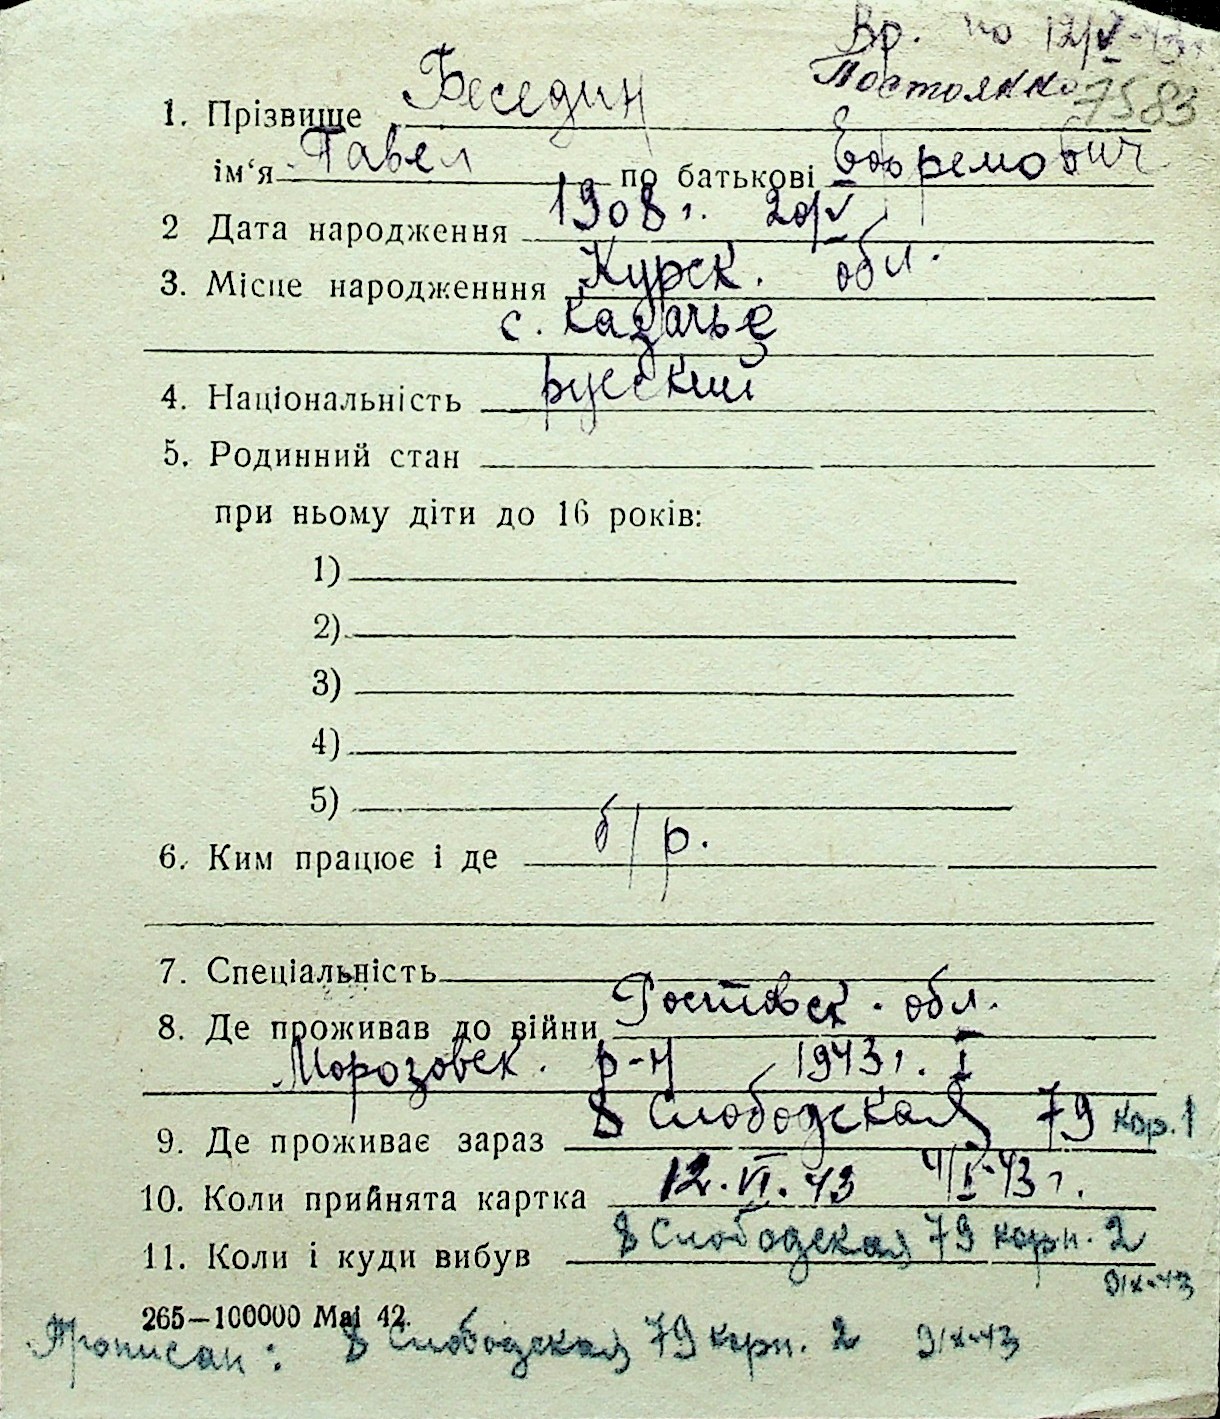 Вр. по 12/V-43г.
Постоянно 7583
1. Прізвище Беседин
ім‘я Павел по батькові Ефремович
2 Дата народження 1908 г. 20/V
3. Місце народженння Курск. обл.
с. Казачье
4. Національність русский
5. Родинний стан
при ньому діти до 16 років:
1)
2)
3)
4)
5)
6. Ким працює і де б/р.
7. Спеціальність
8. Де проживав до війни Ростовск. обл.
Морозовск. р-н 1943 г. I
9. Де проживає зараз 8 Слободская 79 кор. 1
10. Коли прийнята картка 12.VI.43 4/I-43 г.
11. Коли і куди вибув 8 Слободская 79 корп. 2
9/X-43
265—100000 Mai 42.
Прописан: 8 Слободская 79 корп. 2 9/X-43